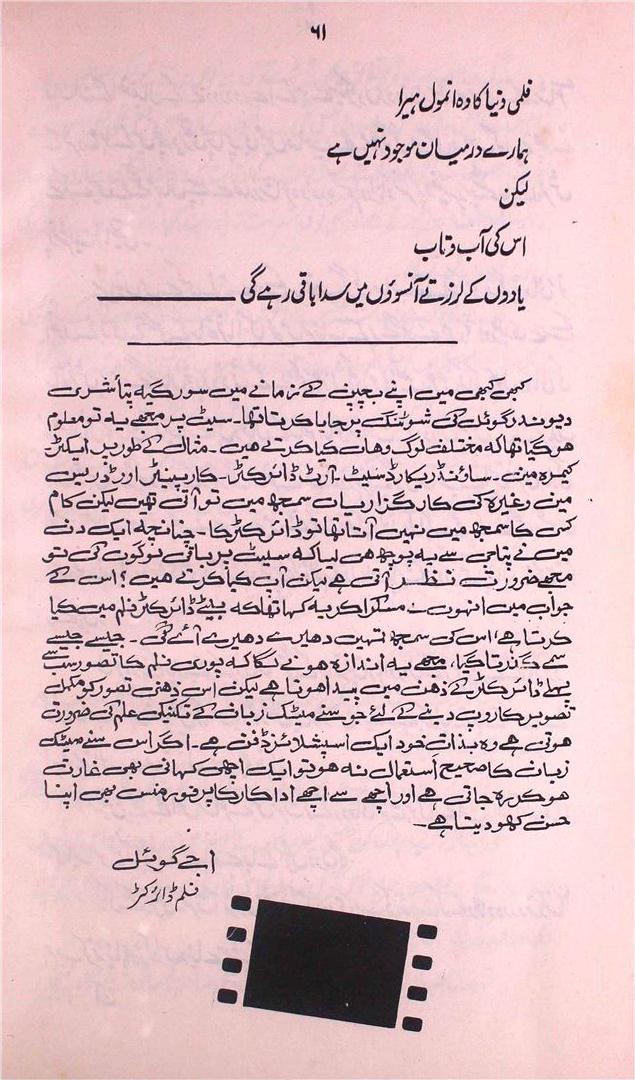 ۶۱
فلمی دنیا کا وہ انمول ہیرا
ہمارے درمیان موجود نہیں ہے
لیکن
اس کی آب و تاب
یادوں کے لرزتے آنسوؤں میں سدا باقی رہے گی
کبھی کبھی میں اپنے بچپن کے زمانے میں سورگیہ پتا شری
دیوندر گوئل کی شوٹنگ پر جایا کرتا تھا۔ سیٹ پر مجھے یہ تو معلوم
ہو گیا تھا کہ مختلف لوگ وھاں کیا کرتے ھیں۔ مثال کے طور پر ایکٹر
کیمرہ مین۔ ساؤنڈ ریکارڈسٹ۔ آرٹ ڈائرکٹر۔ کارپینٹر اور ڈریس
مین وغیرہ کی کارگزاریاں سمجھ میں تو آتی تھیں لیکن کام
کسی کا سمجھ میں نہیں آتا تھا تو ڈائرکٹر کا۔ چنانچہ ایک دن
میں نے پتاجی سے یہ پوچھ ھی لیا کہ سیٹ پر باقی لوگوں کی تو
مجھے ضرورت نظر آتی ہے لیکن آپ کیا کرتے ھیں؟ اس کے
جواب میں انہوں نے مسکرا کر یہ کہا تھا کہ بیٹے ڈائرکٹر فلم میں کیا
کرتا ہے، اس کی سمجھ تمہیں دھیرے دھیرے آئے گی۔ جیسے جیسے
سمے گذرتا گیا، مجھے یہ اندازہ ھونے لگا کہ پوری فلم کا تصور سب سے
پہلے ڈائرکٹر کے ذھن میں پیدا ھوتا ہے لیکن اس ذھنی تصور کو مکمل
تصویر کا روپ دینے کے لئے جو سنے میٹک زبان کے تکنیکی علم کی ضرورت
ھوتی ہے وہ بذات خود ایک اسپشلائزڈ فن ہے۔ اگر اس سنے میٹک
زبان کا صحیح استعمال نہ ھو تو ایک اچھی کہانی بھی غارت
ھو کر رہ جاتی ہے اور اچھے سے اچھے اداکار کا پرفورمنس بھی اپنا
حسن کھو دیتا ہے۔
اجے گوئل
فلم ڈائرکٹر